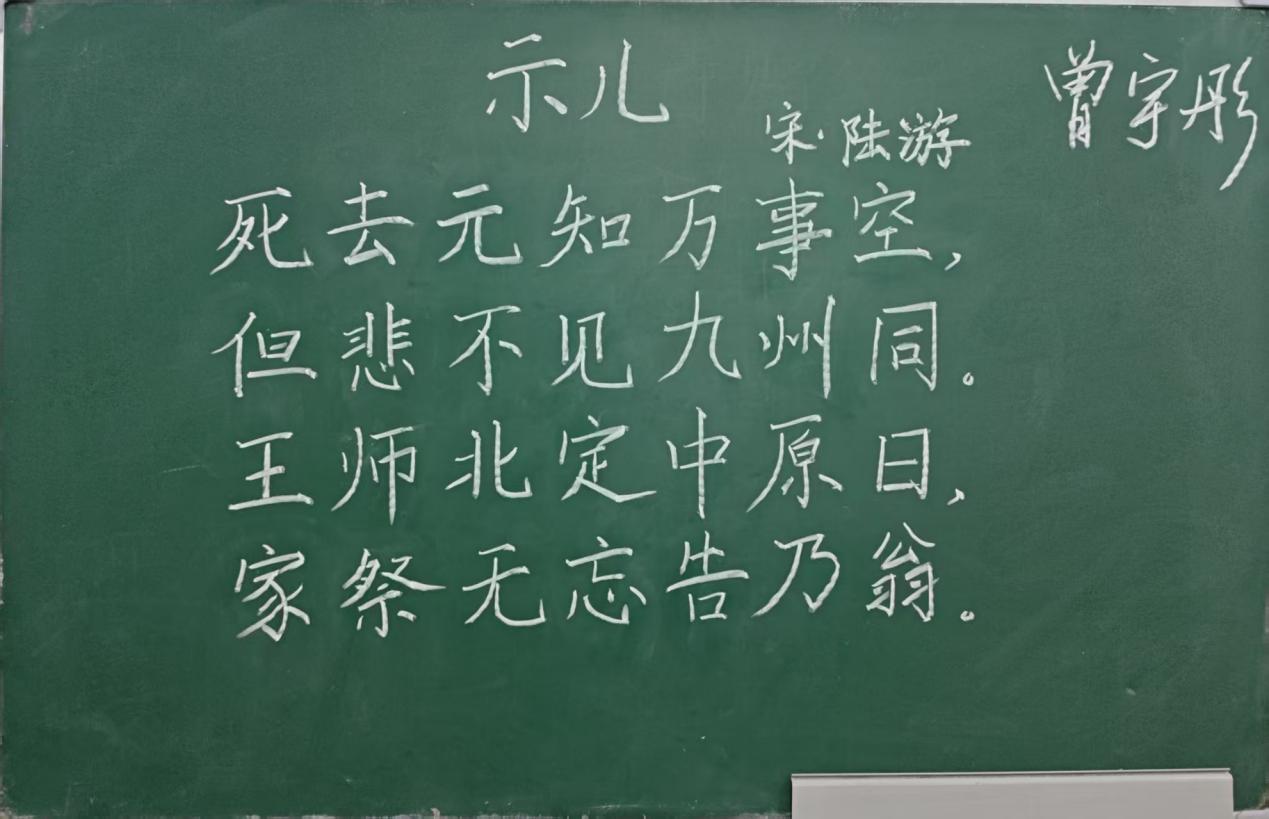 示儿
曾宇彤
宋·陆游
死去元知万事空，
但悲不见九州同。
王师北定中原日，
家祭无忘告乃翁。